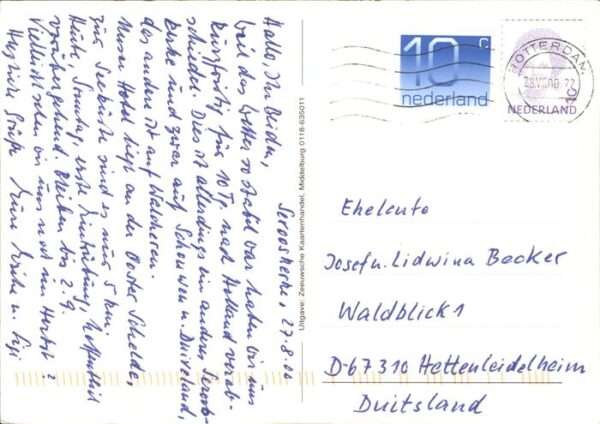 Serooskerke, 27.8.00
Hallo, Ihr Beiden,
weil das Wetter so stabil war haben wir uns
kurzfristig für 10 Tg. nach Holland verab-
schiedet. Dies ist allerdings ein anderes Seroos-
kerke und zwar auf Schouwen u. Duiveland,
das andere ist auf Walcheren.
Unser Hotel liegt an der Ooster Schelde,
zur Seeküste sind es nur 5 km.
Heute, Sonntag, erste Eintrübung, hoffentlich
vorübergehend. Bleiben bis 2.9.
Vielleicht sehen wir uns noch im Herbst?
Herzliche Grüße
Uitgave: Zeeuwsche Kaartenhandel, Middelburg 0118-635011
10 c
nederland
NEDERLAND
ROTTERDAM
Eheleute
Josef u. Lidwina Becker
Waldblick 1
D-67310 Hettenleidelheim
Duitsland